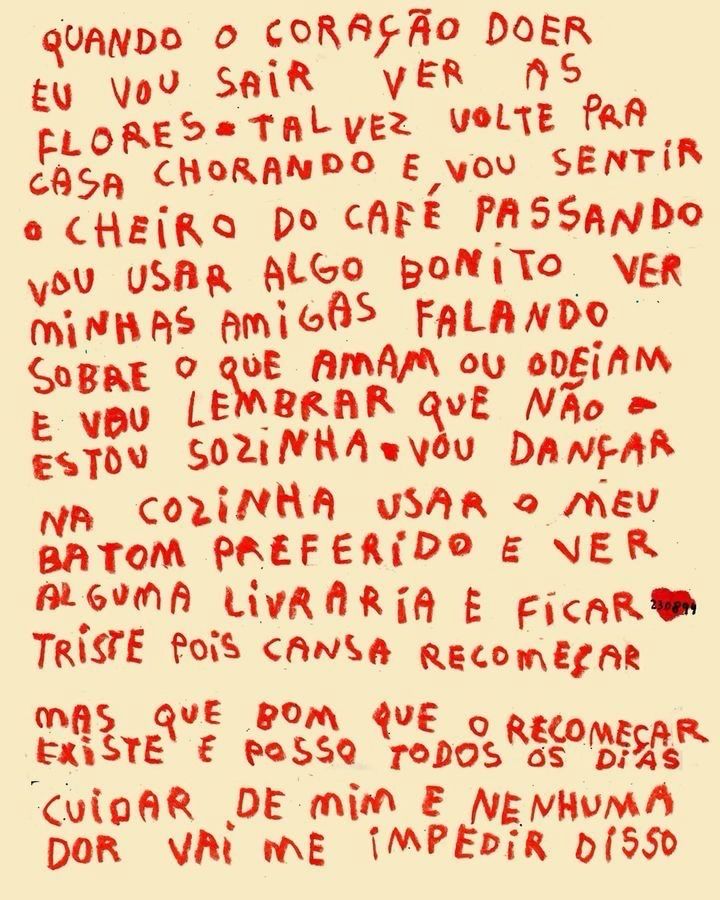 QUANDO O CORAÇÃO DOER
EU VOU SAIR VER AS
FLORES. TALVEZ VOLTE PRA
CASA CHORANDO E VOU SENTIR
O CHEIRO DO CAFÉ PASSANDO
VOU USAR ALGO BONITO VER
MINHAS AMIGAS FALANDO
SOBRE O QUE AMAM OU ODEIAM
E VOU LEMBRAR QUE NÃO -
ESTOU SOZINHA. VOU DANÇAR
NA COZINHA USAR O MEU
BATOM PREFERIDO E VER
ALGUMA LIVRARIA E FICAR
230899
TRISTE POIS CANSA RECOMEÇAR
MAS QUE BOM QUE O RECOMEÇAR
EXISTE E POSSO TODOS OS DIAS
CUIDAR DE MIM E NENHUMA
DOR VAI ME IMPEDIR DISSO